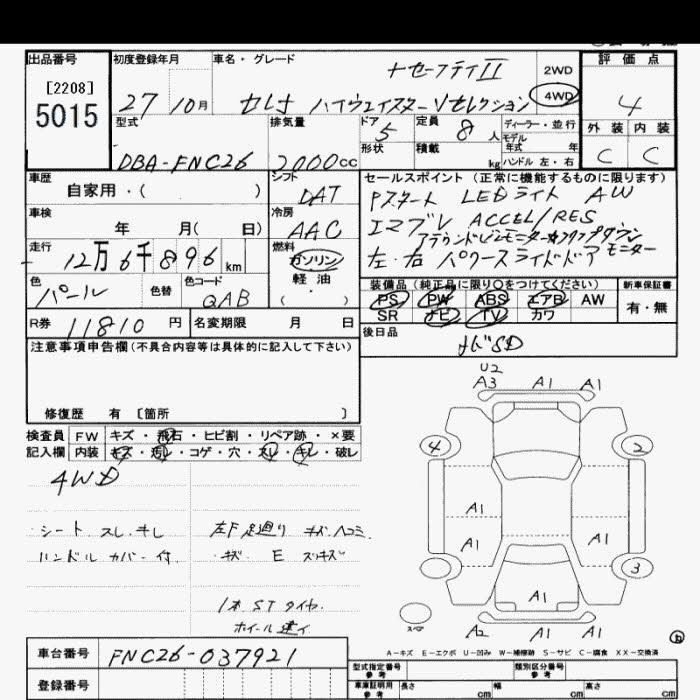 出品番号
[2208]
5015
初度登録年月
27 10月
車名・グレード
+セーフティII
セレナ ハイウェイスターVセレクション
2WD
4WD
評価点
4
外装 内装
C C
型式
DBA-FNC26
排気量
2000cc
ドア
5
形状
定員
8人
積載
kg
ディーラー・並行
モデル
年式 年
ハンドル 左・右
車歴
自家用・( )
シフト
DAT
車検
年 月( 日)
冷房
AAC
走行
12万6千896km
燃料
ガソリン
軽油
( ・ )
色
パール
色替
色コード
QAB
R券
11810円
名変期限 月 日
セールスポイント(正常に機能するものに限ります)
Pスタート LEDライト AW
エマブレ ACCEL/RES
アラウンドビューモニター
左・右 パワースライドドア モニター
装備品(純正品に限り○をつけてください)
PS PW ABS エアB AW
SR ナビ TV カワ
新車保証書
有・無
後日品
ナビSD
注意事項申告欄(不具合内容等は具体的に記入して下さい)
修復歴 有 [箇所 ]
検査員
記入欄
FW キズ・飛石・ヒビ割・リペア跡・×要
内装 キズ・汚レ・コゲ・穴・スレ・キレ・破レ
4WD
シート スレ キレ
ハンドル カバー付
左F足廻り キズ ヘコミ
キズ E スリキズ
1本STタイヤ
ホイール違イ
U2
A3 A1 A1
4 2
A1
A1 A1
3
A1
A2 A1 A1
スペア
A-キズ E-エクボ U-凹み W-補修跡 S-サビ C-腐食 XX-交換済
車台番号
FNC26-037921
登録番号
型式指定番号
参考
類別区分番号
参考
車庫証明用
参考
長さ cm 幅 cm 高さ cm